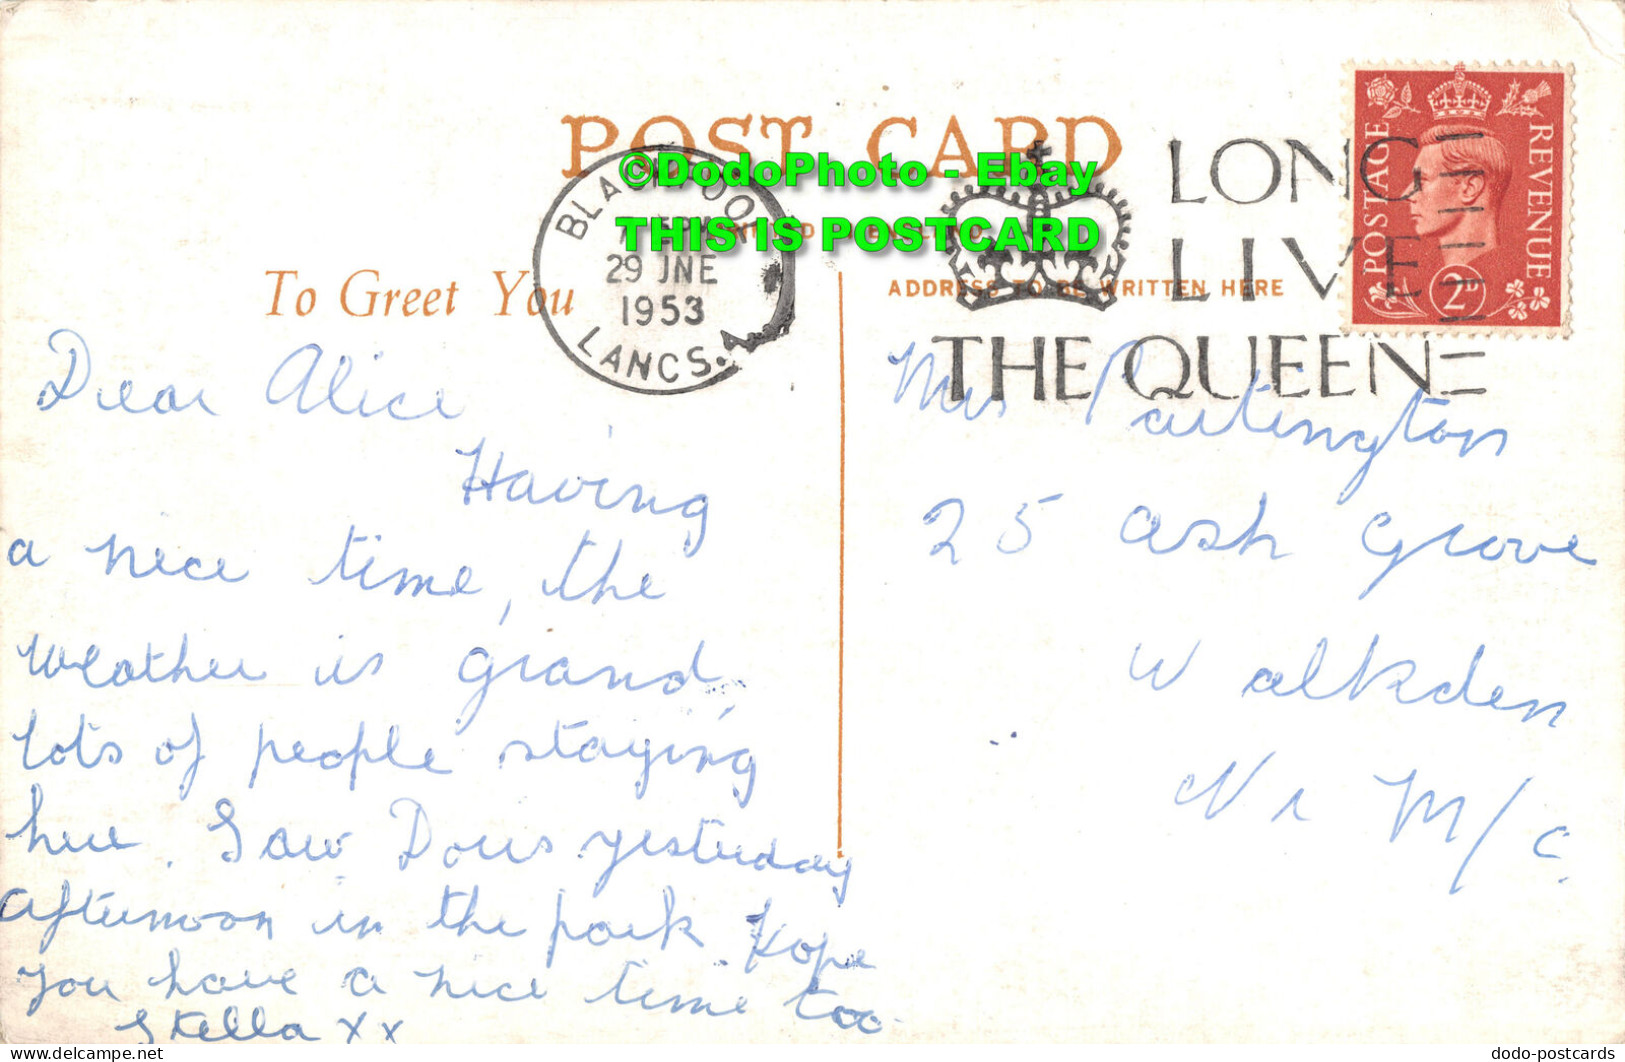 POST CARD
©DodoPhoto - Ebay
THIS IS POSTCARD
BLACKPOOL
29 JNE
1953
LANCS.
LONG
LIVE
THE QUEEN
POSTAGE
REVENUE
2D
To Greet You
ADDRESS TO BE WRITTEN HERE
Dear Alice
Having
a nice time, the
weather is grand,
lots of people staying
here. Saw Doris yesterday
afternoon in the park. Hope
you have a nice time too
Stella xx
Mrs Partington
25 Ash Grove
Walkden
Nr M/c.
dodo-postcards